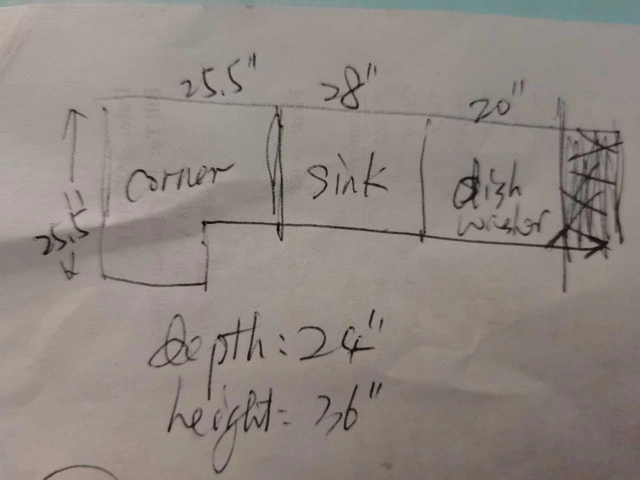 25.5" 28" 20"
25.5"
corner
sink
dish
washer
depth: 24"
height: 36"